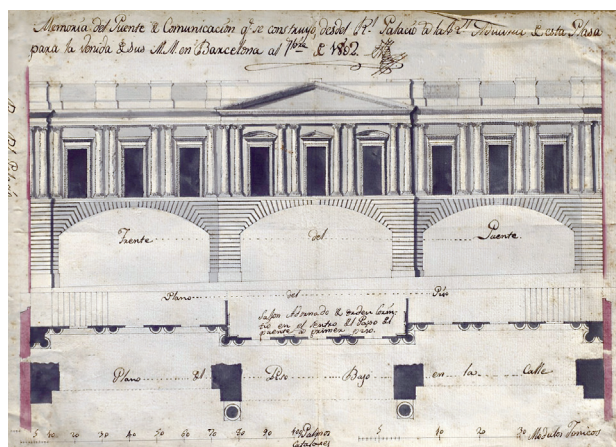 Memoria del Puente de Comunicación q.e se construyó, desde el R.l Palacio á la R.l Aduana de esta Plasa
para la venida de sus MM en Barcelona al 7bre de 1802
Frente del Puente.
Plano del Piso
Salon Adornado de orden Corin-
tio en el sentro del Paso del
puente á primer piso.
Plano del Piso Bajo en la Calle
5 10 20 30 40 50 60 70 80 90 100 Palmos
Catalanes
5 10 20 30 Modulos Jonicos